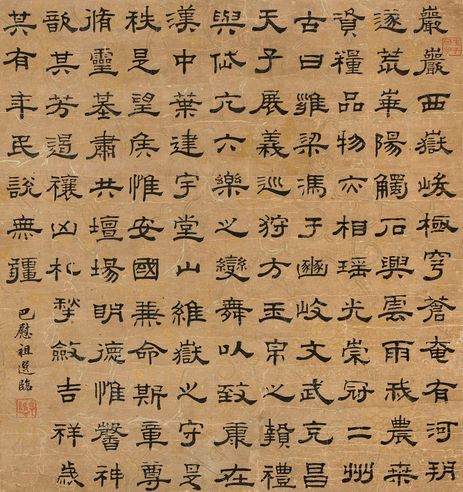 巖巖西嶽峻極穹蒼奄有河朔
遂荒華陽觸石興雲雨我農桒
資糧品物亦相瑤光崇冠二州
古曰雍梁馮于豳岐文武克昌
天子展義巡狩方玉帛之贄禮
與岱亢六樂之變舞以致康在
漢中葉建宇堂山維嶽之守是
秩是望侯惟安國兼命斯章尊
脩靈基肅共壇場明德惟馨神
歆其芳遏禳凶札揫斂吉祥歲
其有年民說無疆
巴慰祖選臨